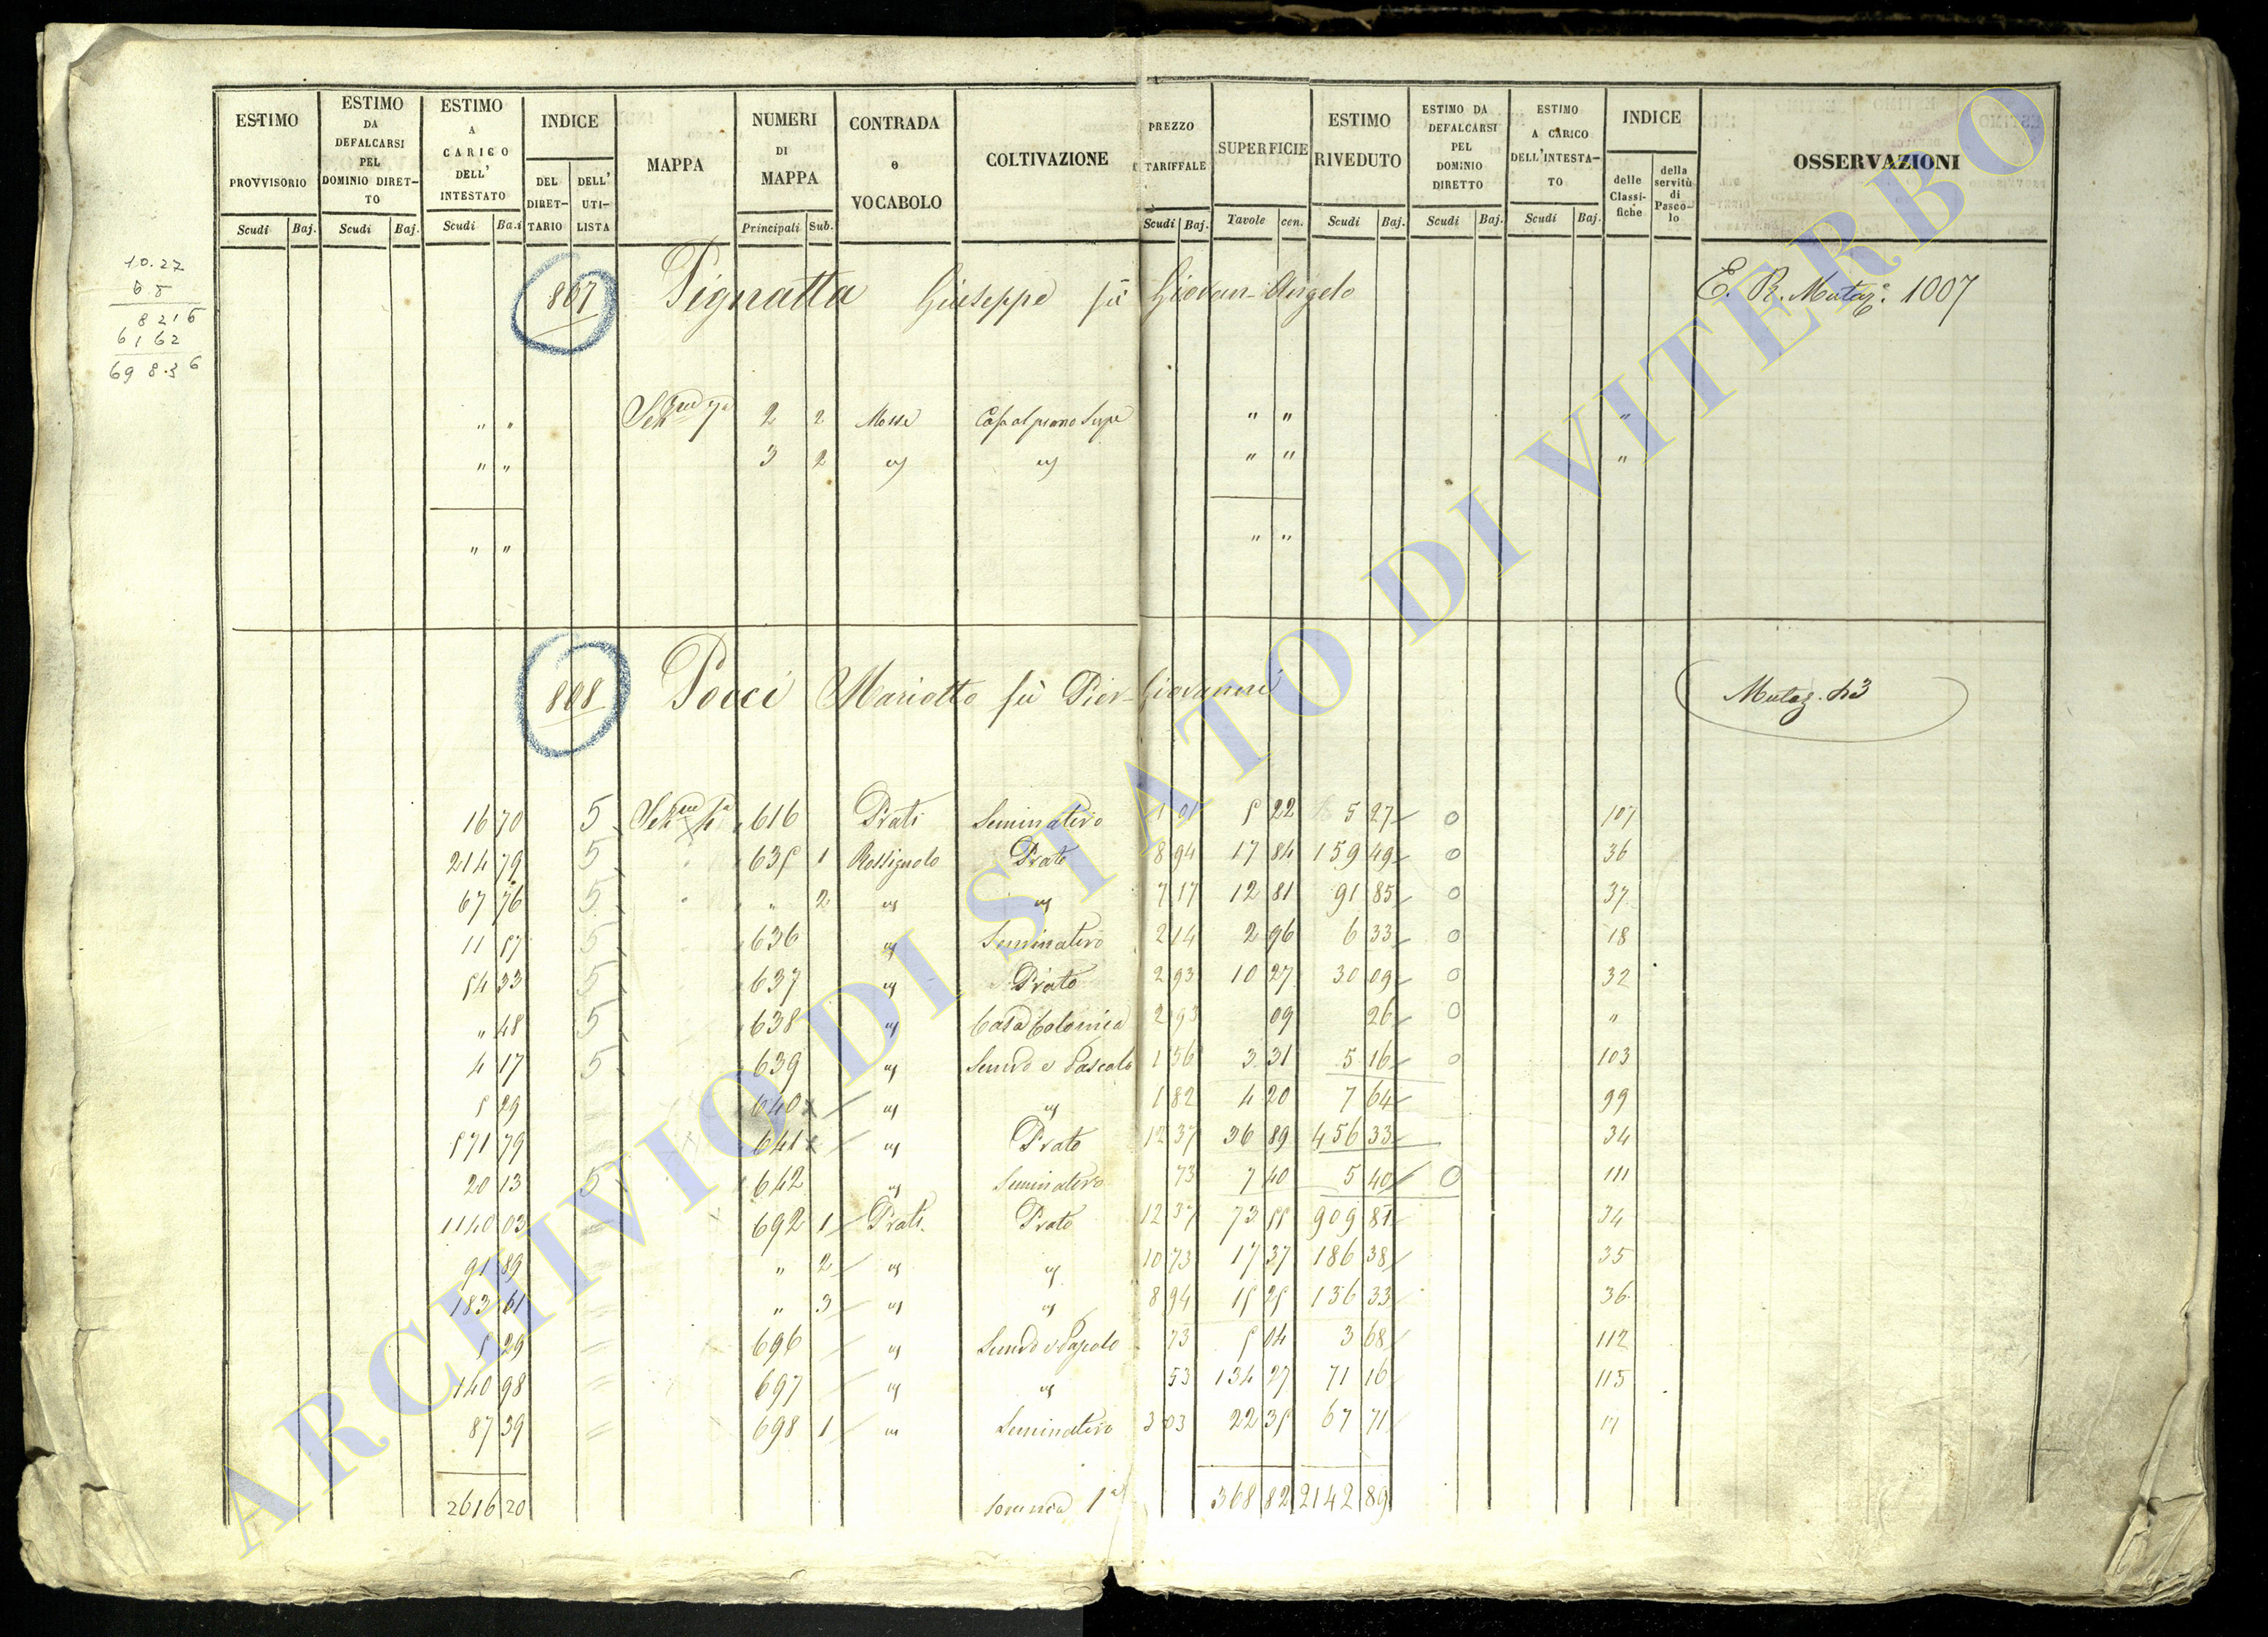 ESTIMO PROVVISORIO
ESTIMO DA DEFALCARSI PEL DOMINIO DIRET-TO
ESTIMO A CARICO DELL' INTESTATO
INDICE
DEL DIRET-TARIO
DELL' UTI-LISTA
MAPPA
NUMERI DI MAPPA
CONTRADA o VOCABOLO
COLTIVAZIONE
PREZZO TARIFFALE
SUPERFICIE
ESTIMO RIVEDUTO
ESTIMO DA DEFALCARSI PEL DOMINIO DIRETTO
ESTIMO A CARICO DELL'INTESTA-TO
INDICE
delle Classi-fiche
della servitù di Pasco-lo
OSSERVAZIONI
Scudi Baj. Scudi Baj. Scudi Ba.i Principali Sub. Scudi Baj. Tavole cen. Scudi Baj. Scudi Baj. Scudi Baj.
10.27
68
8216
6162
698.36
807 Pignatta Giuseppe fù Giovan-Angelo E. R. Mutaz.e 1007
" " Sez.ne 7a 2 2 Casa al piano Supe " " "
" " 3 2 " " "
" " " "
808 Pocci Mariotto fù Pier-Giovanni Mutaz. 43
16 70 5 616 Prati Seminativo 1 01 5 22 5 27 0 107
214 79 5 635 1 Rossignolo Prato 8 94 17 84 159 49 0 36
67 76 5 " 2 7 17 12 81 91 85 0 37
11 57 5 636 Seminativo 2 14 2 96 6 33 0 18
54 33 5 637 Prato 2 93 10 27 30 09 0 32
" 48 5 638 Casa Colonica 2 93 09 26 0 "
4 17 5 639 Semvo e Pascolo 1 56 3 31 5 16 0 103
5 29 640 1 82 4 20 7 64 99
571 79 641 Prato 12 37 36 89 456 33 34
20 13 5 642 Seminativo 73 7 40 5 40 0 111
1140 03 692 1 Prati Prato 12 37 73 55 909 81 34
91 89 " 2 10 73 17 37 186 38 35
183 61 " 3 8 94 15 25 136 33 36
5 29 696 Semvo e Pascolo 73 5 04 3 68 112
140 98 697 53 134 27 71 16 115
87 39 698 1 Seminativo 3 03 22 35 67 71
2616 20 Somma 1a 368 82 2142 89
ARCHIVIO DI STATO DI VITERBO